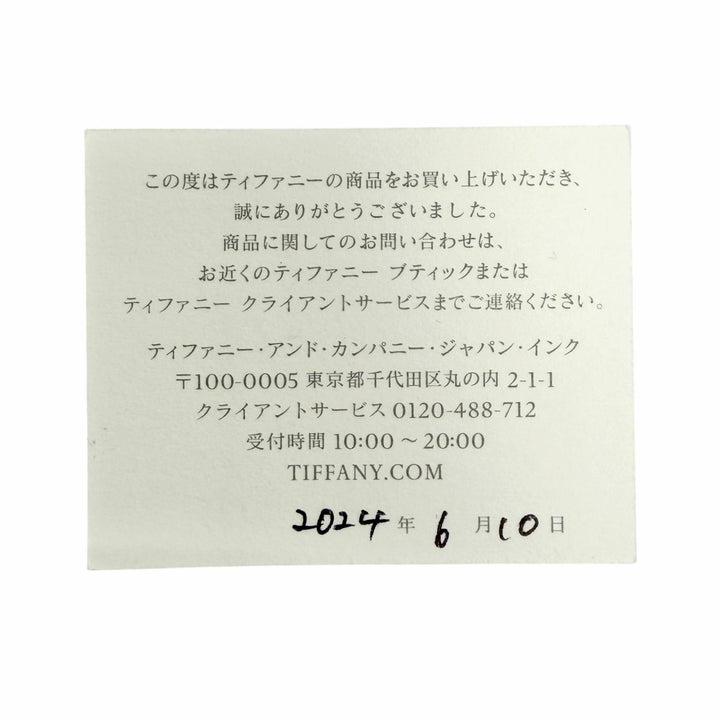 この度はティファニーの商品をお買い上げいただき、
誠にありがとうございました。
商品に関してのお問い合わせは、
お近くのティファニー ブティックまたは
ティファニー クライアントサービスまでご連絡ください。
ティファニー・アンド・カンパニー・ジャパン・インク
〒100-0005 東京都千代田区丸の内 2-1-1
クライアントサービス 0120-488-712
受付時間 10:00 〜 20:00
TIFFANY.COM
2024 年 6 月 10 日